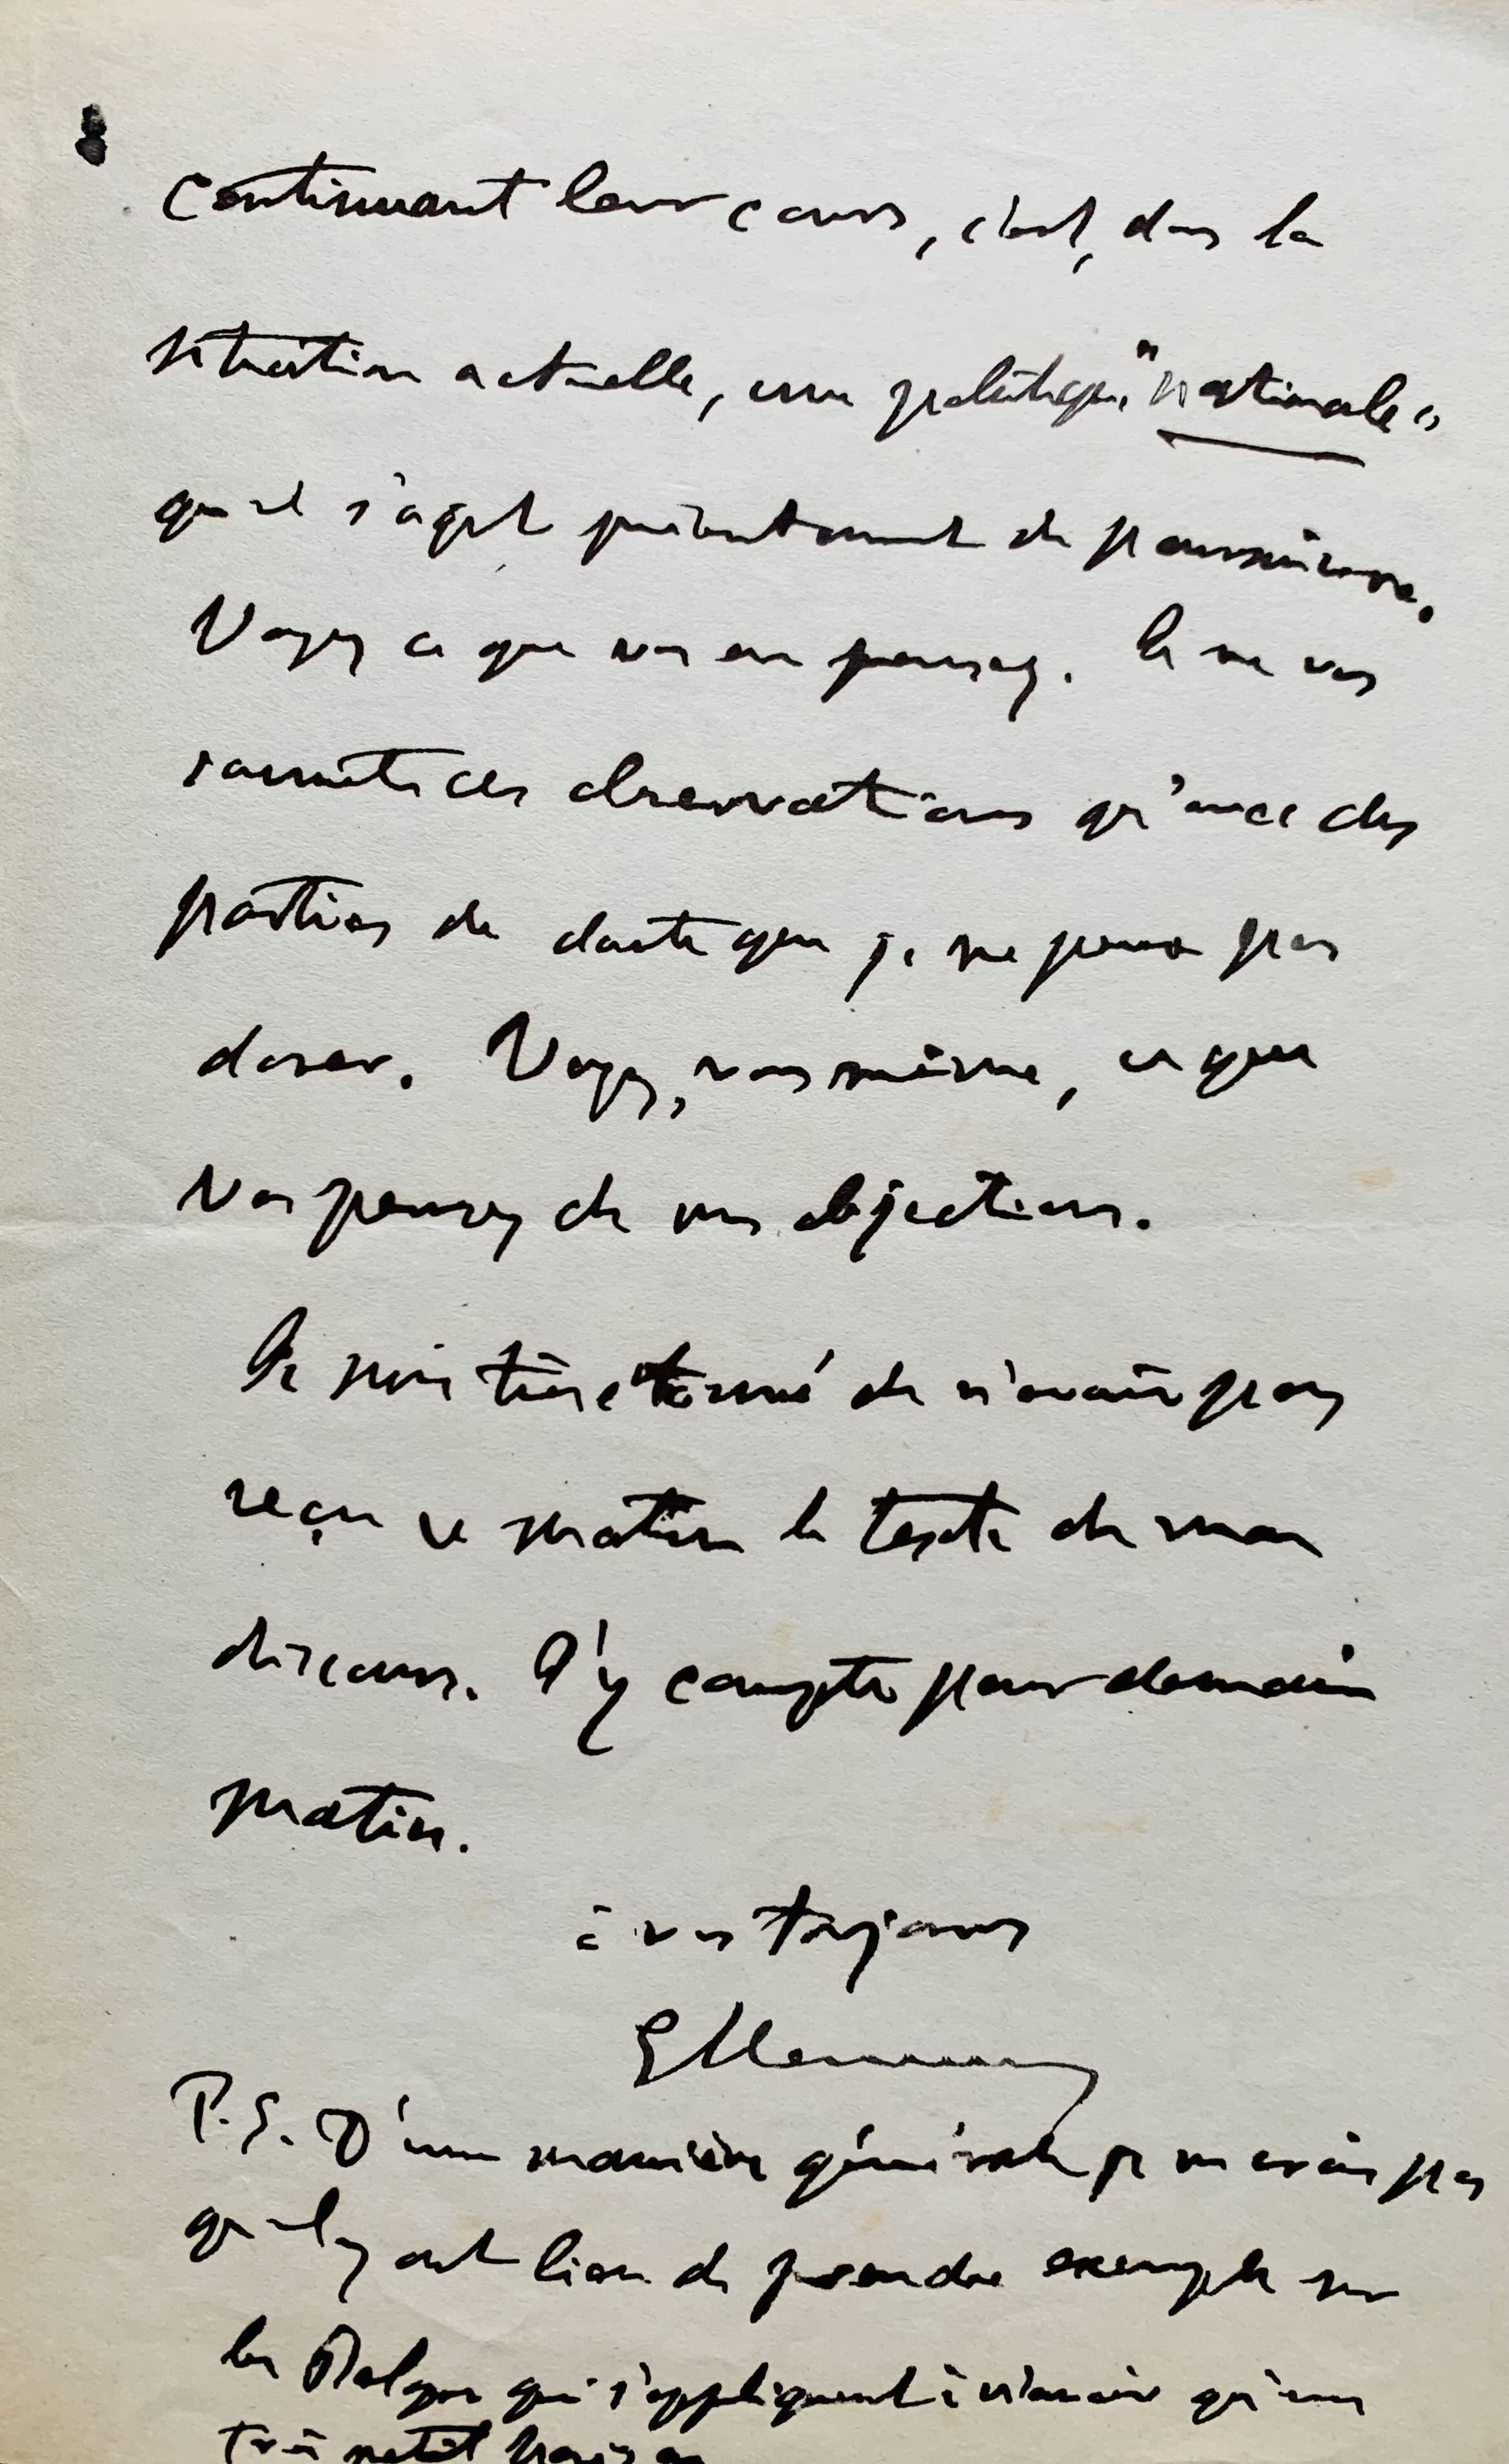 continuant leur cours, c'est, dans la
situation actuelle, une politique "nationale"
qu'il s'agit présentement de poursuivre.
Voyez ce que vous en pensez. Je ne vous
soumets ces observations qu'avec des
parties de doute que je ne peux pas
doser. Voyez, vous même, ce que
vous pensez de mes objections.
Je suis très étonné de n'avoir pas
reçu ce matin le texte de mon
discours. J'y compte pour demain
matin.
à vous toujours
P.S. D'une manière générale je ne crois pas
qu'il y ait lieu de prendre exemple sur
les Belges qui s'appliquent à n'avoir qu'un
très petit horizon